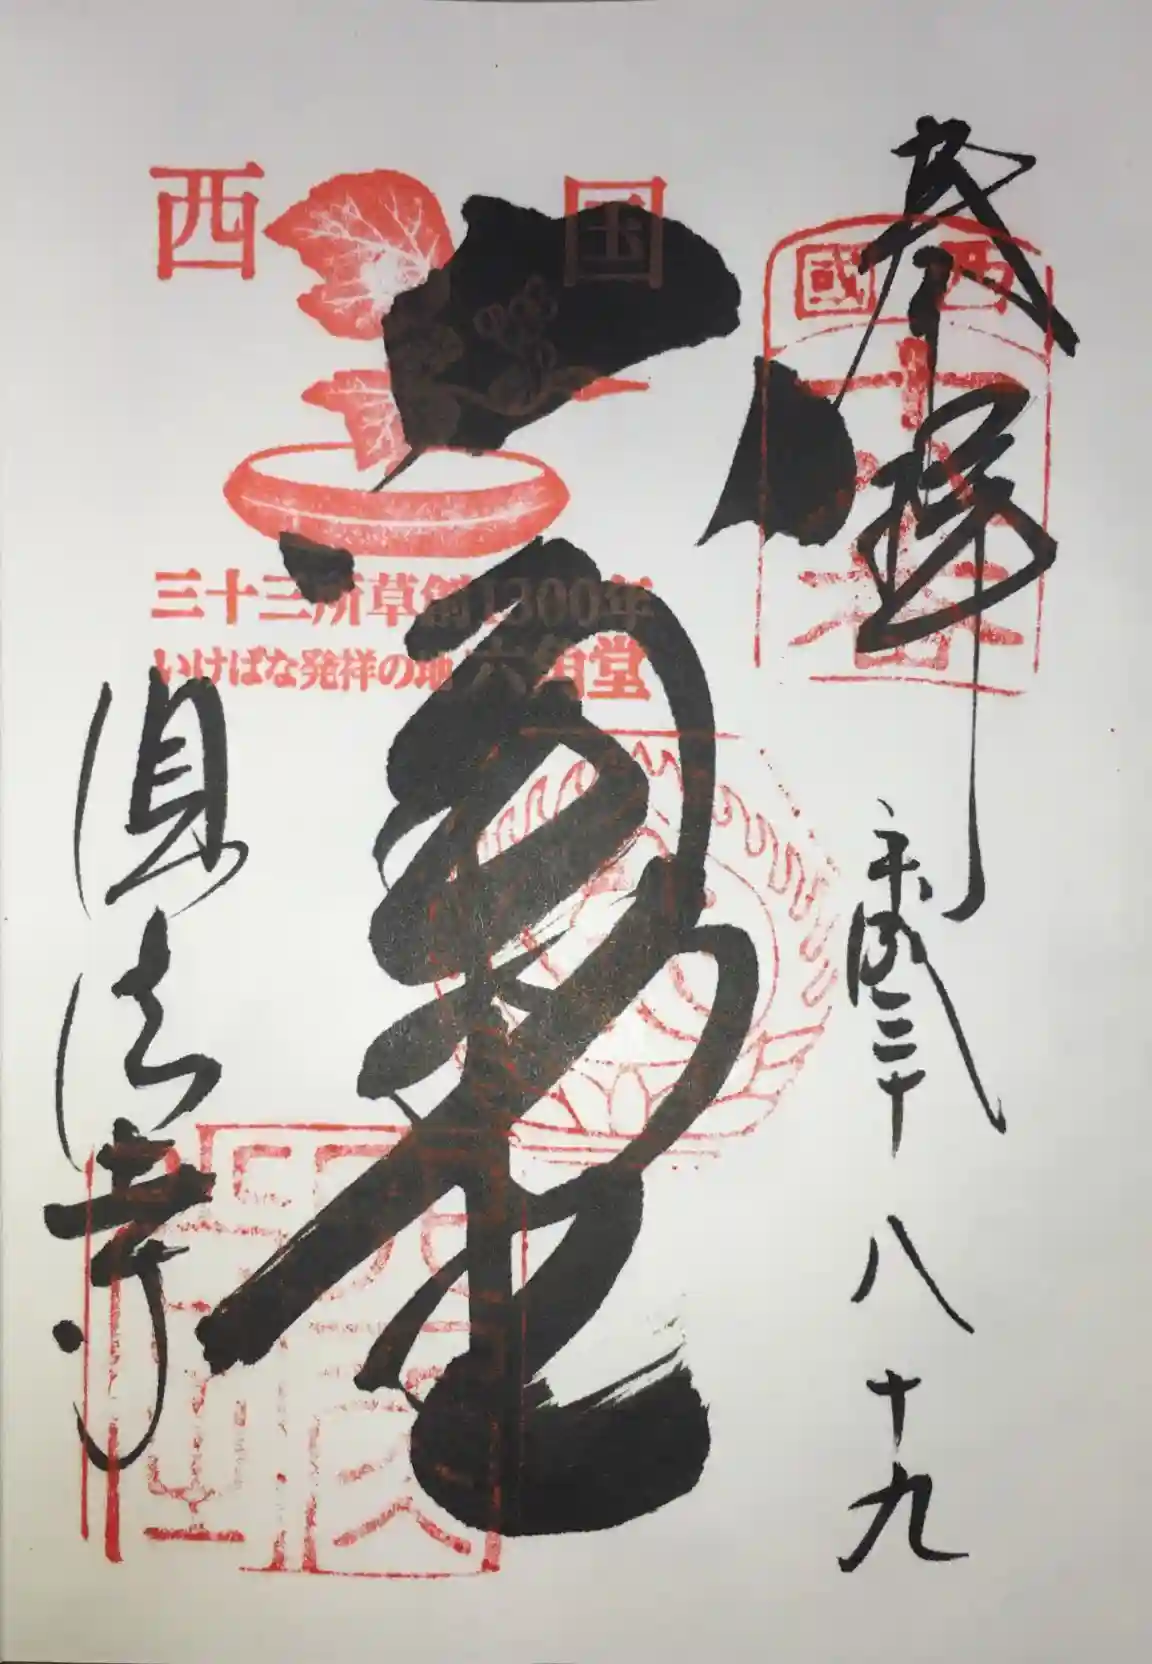 奉拝
西國
十八番
平成三十 八 十九
六角堂
西国
三十三所草創1300年
いけばな発祥の地 六角堂
頂法寺